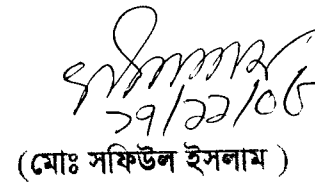 ১৭/১১/০৫
(মোঃ সফিউল ইসলাম )